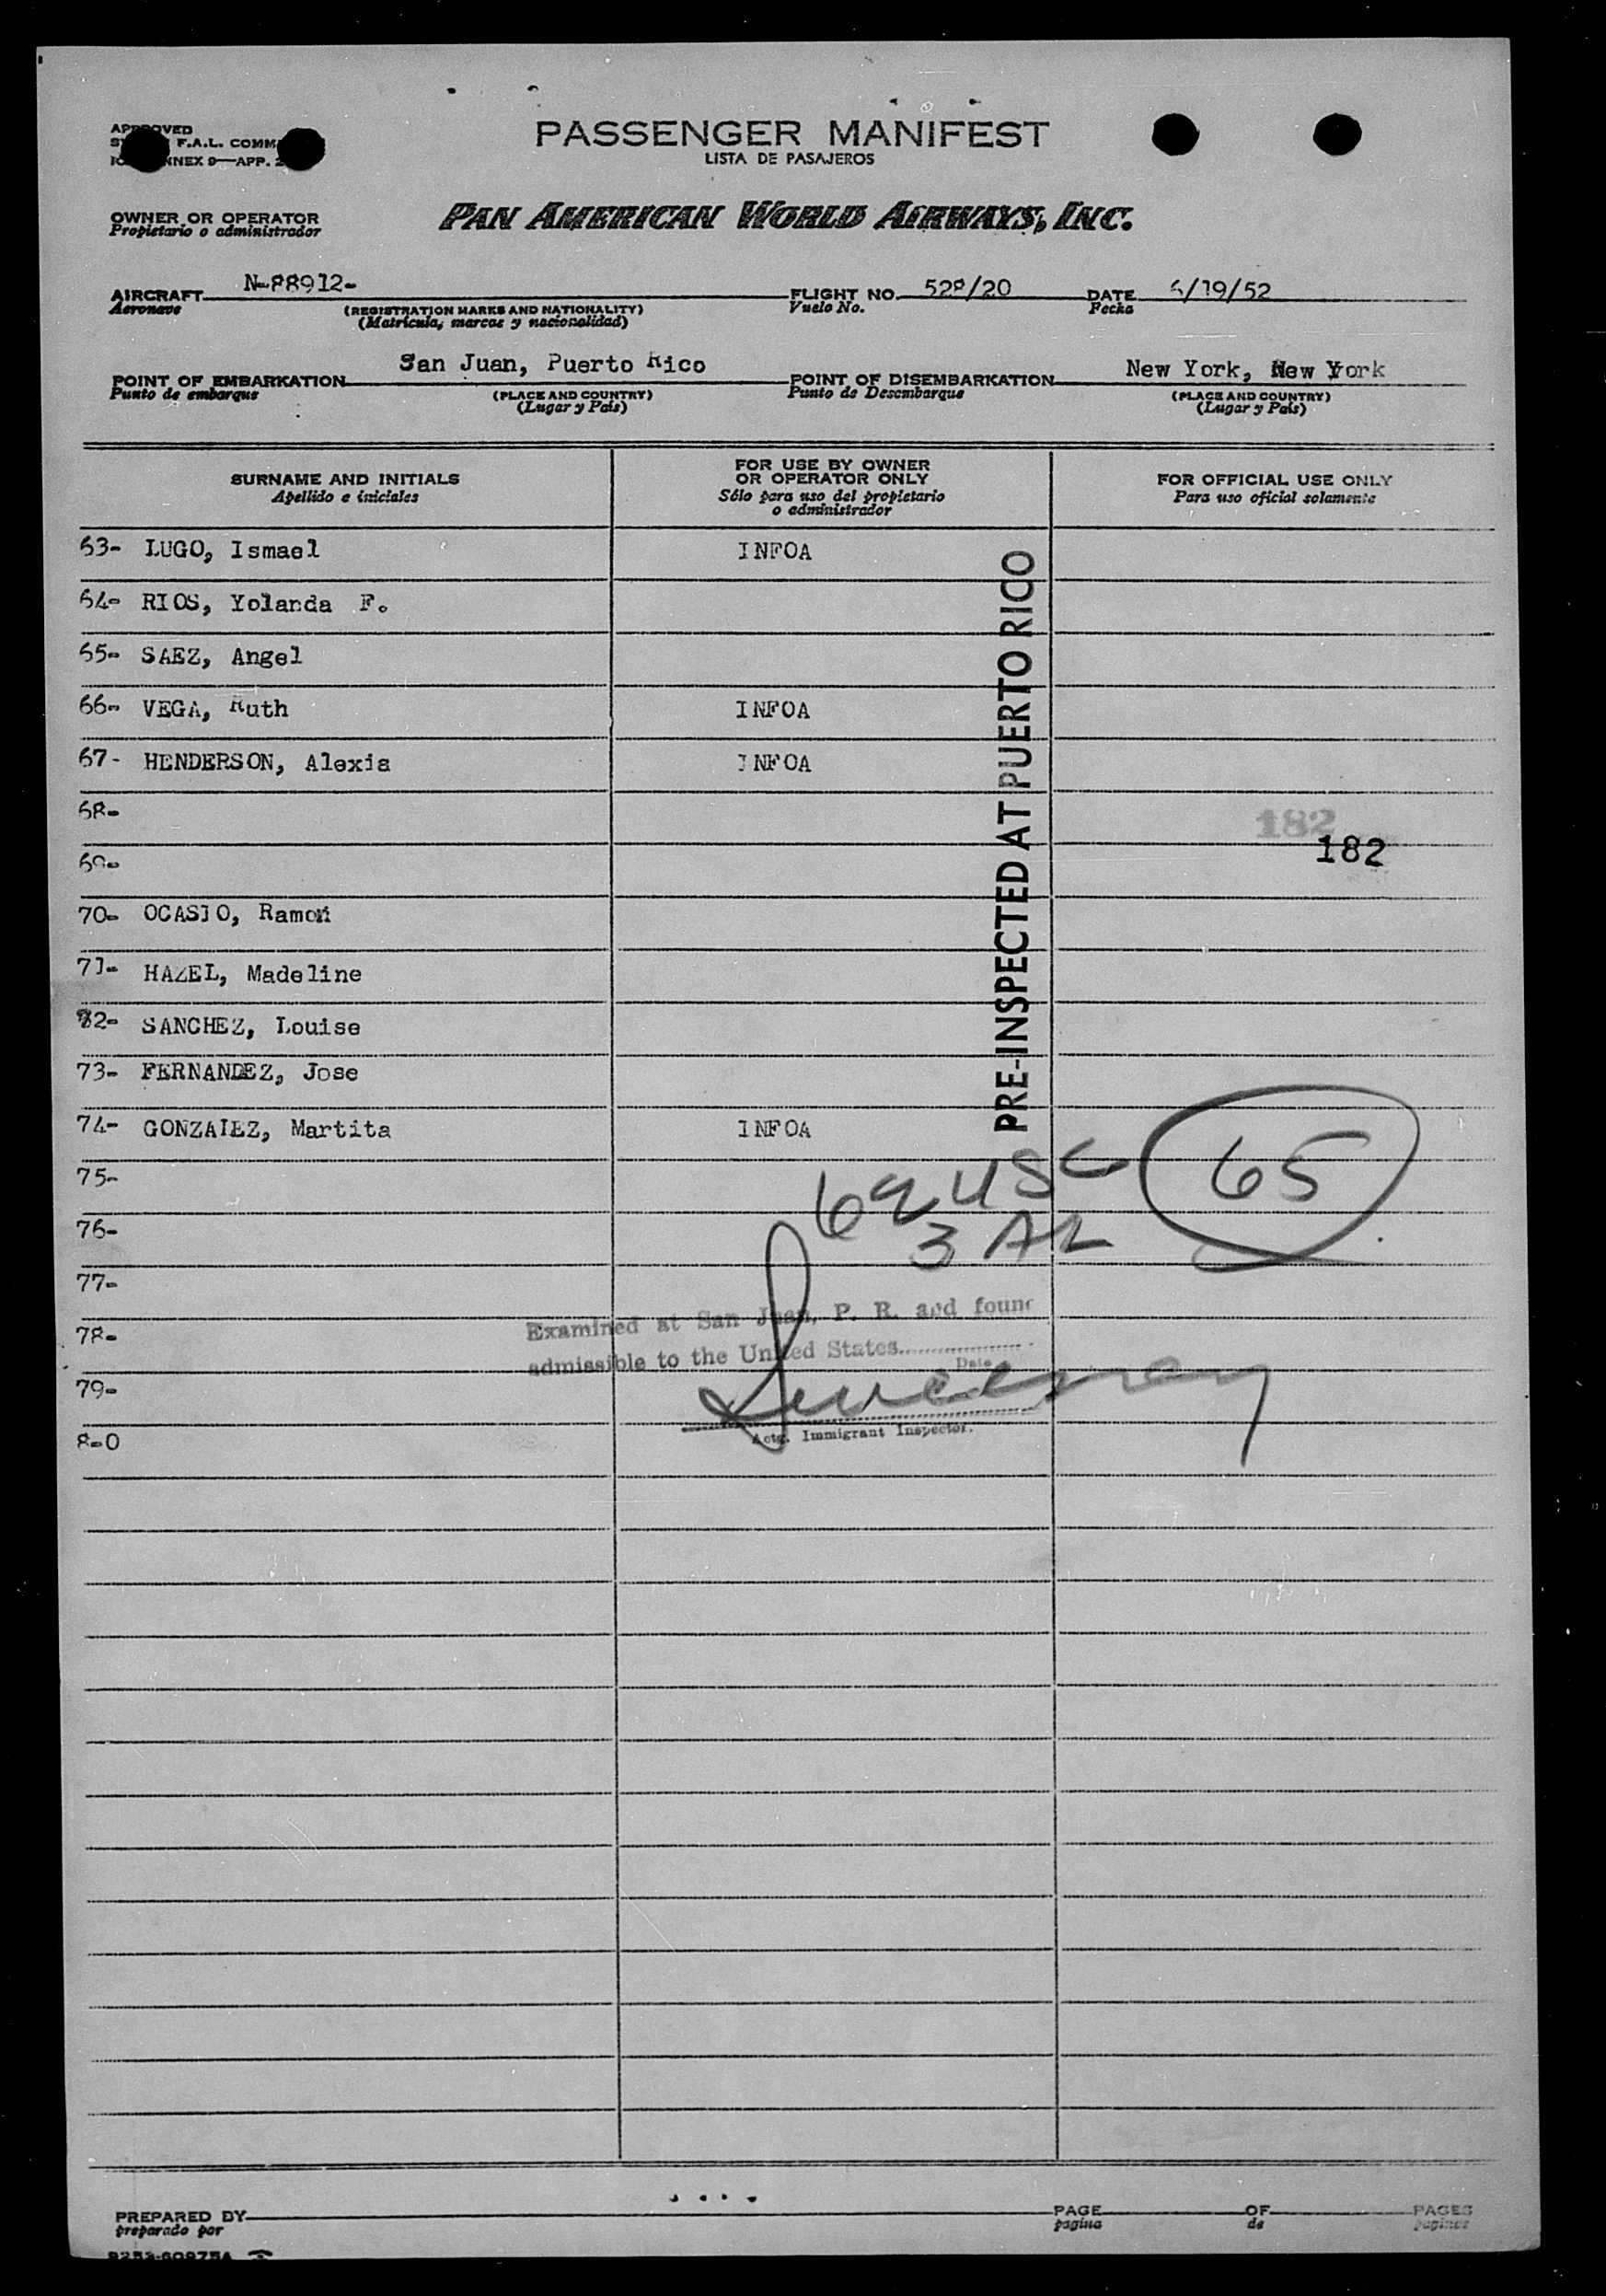 PASSENGER MANIFEST
LISTA DE PASAJEROS
F.A.L. COMM
ANNEX 9—APP. 2
OWNER OR OPERATOR
Propietario o administrador
PAN AMERICAN WORLD AIRWAYS, INC.
AIRCRAFT N-88912-
Aeronave
(REGISTRATION MARKS AND NATIONALITY)
(Matrícula, marcas y nacionalidad)
FLIGHT NO. 528/20
Vuelo No.
DATE 6/19/52
Fecha
POINT OF EMBARKATION San Juan, Puerto Rico
Punto de embarque
(PLACE AND COUNTRY)
(Lugar y País)
POINT OF DISEMBARKATION New York, New York
Punto de Desembarque
(PLACE AND COUNTRY)
(Lugar y País)
SURNAME AND INITIALS
Apellido e iniciales
FOR USE BY OWNER
OR OPERATOR ONLY
Sólo para uso del propietario
o administrador
FOR OFFICIAL USE ONLY
Para uso oficial solamente
63- LUGO, Ismael INFOA
64- RIOS, Yolanda F.
65- SAEZ, Angel
66- VEGA, Ruth INFOA
67- HENDERSON, Alexia INFOA
68-
182
69-
182
70- OCASIO, Ramon
71- HAZEL, Madeline
72- SANCHEZ, Louise
73- FERNANDEZ, Jose
74- GONZALEZ, Martita INFOA
PRE-INSPECTED AT PUERTO RICO
75-
62 USC
65
76-
3 AL
77-
78-
Examined at San Juan, P. R. and found
admissible to the United States
Date
79-
Actg. Immigrant Inspector.
8-0
PREPARED BY
preparado por
PAGE
pagina
OF
de
PAGES
paginas